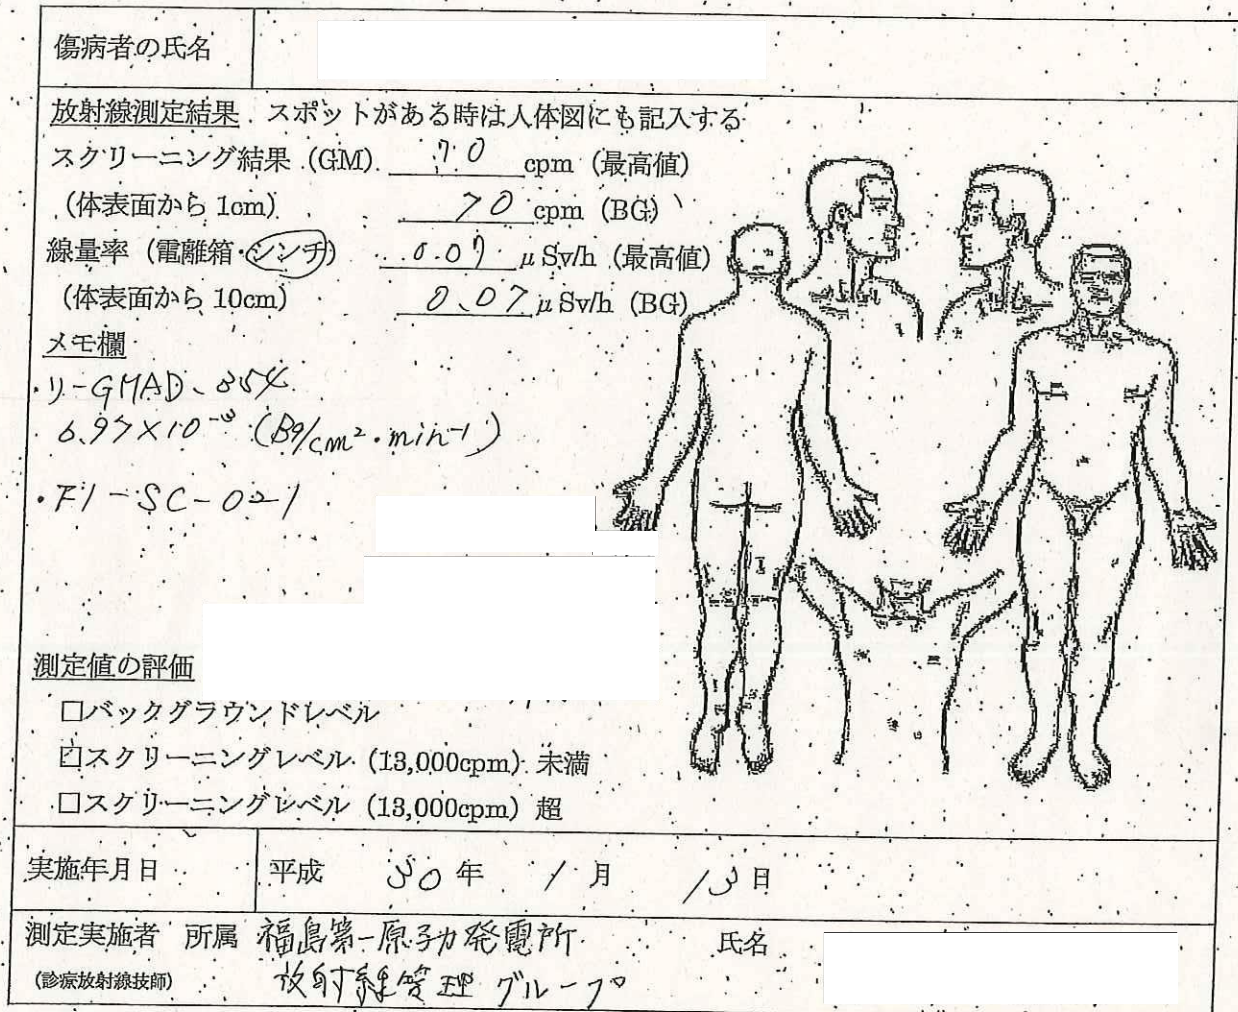 傷病者の氏名
放射線測定結果 スポットがある時は人体図にも記入する
スクリーニング結果 (GM) 70 cpm (最高値)
(体表面から 1cm) 70 cpm (BG)
線量率 (電離箱・シンチ) 0.07 μSv/h (最高値)
(体表面から 10cm) 0.07 μSv/h (BG)
メモ欄
・リ-GMAD-354
6.97×10⁻³ (Bq/cm²・min⁻¹)
・F1-SC-021
測定値の評価
□バックグラウンドレベル
□スクリーニングレベル (13,000cpm) 未満
□スクリーニングレベル (13,000cpm) 超
実施年月日 平成 30 年 1 月 13 日
測定実施者 所属 福島第一原子力発電所 氏名
(診療放射線技師) 放射線管理グループ